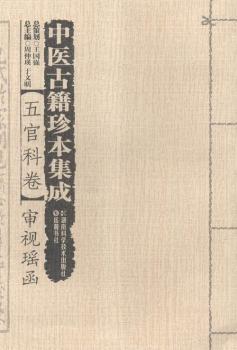 中医古籍珍本集成
总策划◎王国强
总主编◎周仲瑛 于文明
【五官科卷】
审视瑶函
湖南科学技术出版社
岳麓书社